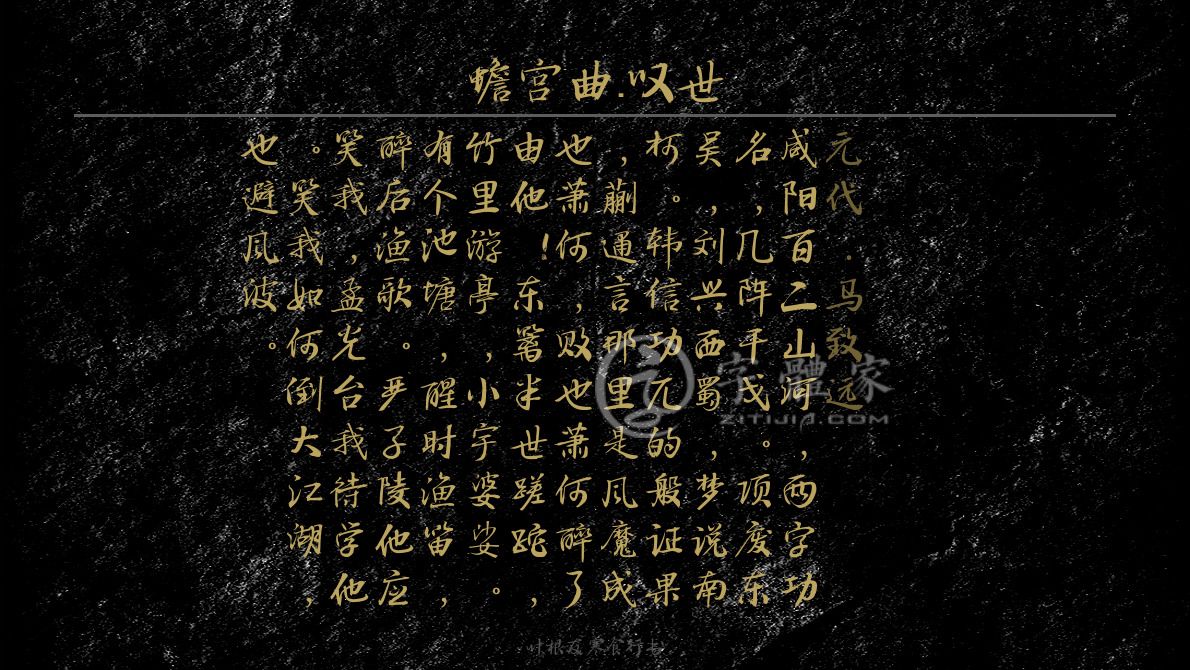 蟾宫曲.叹世
元代.马致远
咸阳百二山河，两字功
名，几阵干戈。项废东
吴，刘兴西蜀，梦说南
柯。韩信功兀的般证果
，蒯通言那里是风魔成
也萧何，败也萧何醉了
由他！东篱半世蹉跎，
竹里游亭，小宇婆娑。
有个池塘，醒时渔笛，
醉后渔歌。严子陵他应
笑我，孟光台我待学他
。笑我如何倒大江湖，
也避风波。
字體家
ZITIJIA.COM
叶根友寒食行书